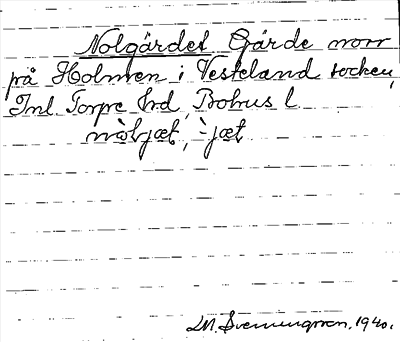 Nolgärdet Gärde norr
på Holmen i Vesteland socken,
Inl. Torpe hrd, Bohus l.
nòljæt, -jæt
M. Svenungsson. 1940.